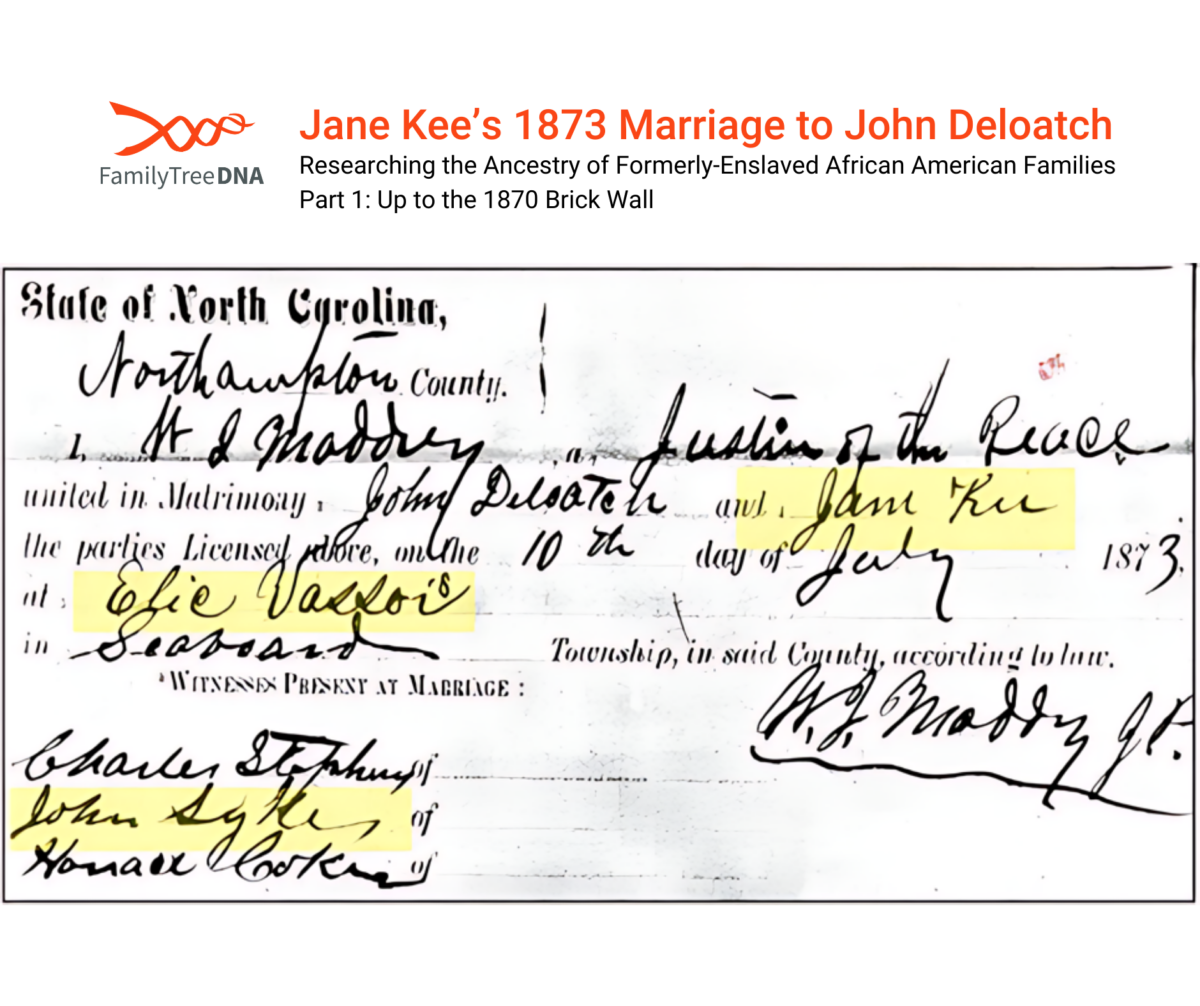 FamilyTreeDNA
Jane Kee's 1873 Marriage to John Deloatch
Researching the Ancestry of Formerly-Enslaved African American Families
Part 1: Up to the 1870 Brick Wall
State of North Carolina,
Northampton County.
I, W J Maddrey, a, Justice of the Peace
united in Matrimony, John Deloatch and, Jane Kee
the parties Licensed above, on the 10th day of July 1873.
at, Elic Vassor's
in Seaboard Township, in said County, according to law.
WITNESSES PRESENT AT MARRIAGE:
W. J. Maddry J P.
Charles Stephens of
John Sykes of
Horrace of